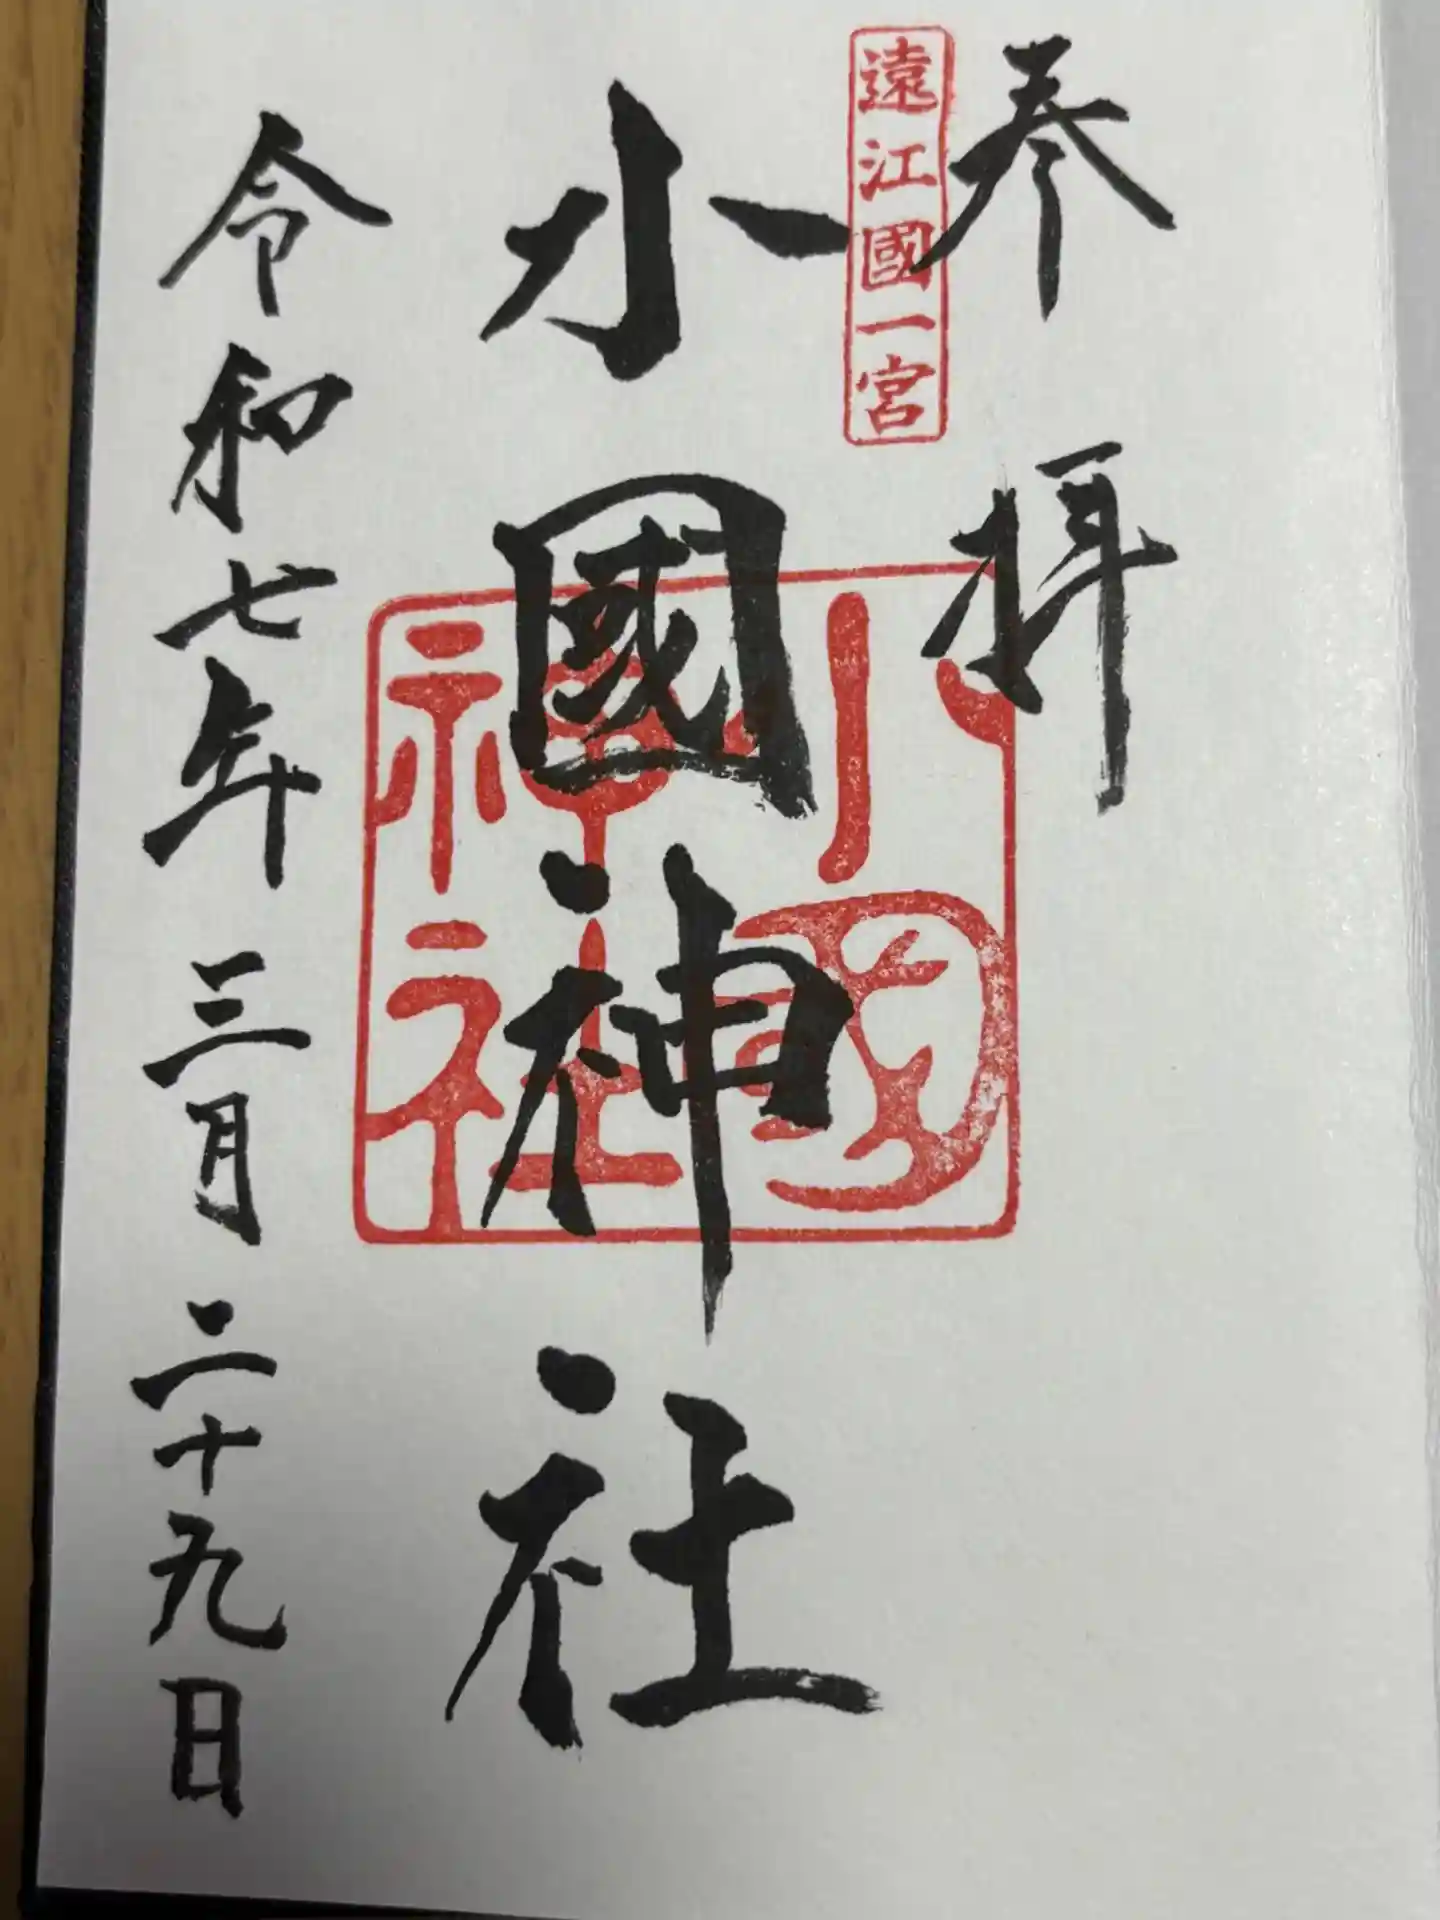 奉拝
遠江國一宮
小國神社
小國神社
令和七年三月二十九日